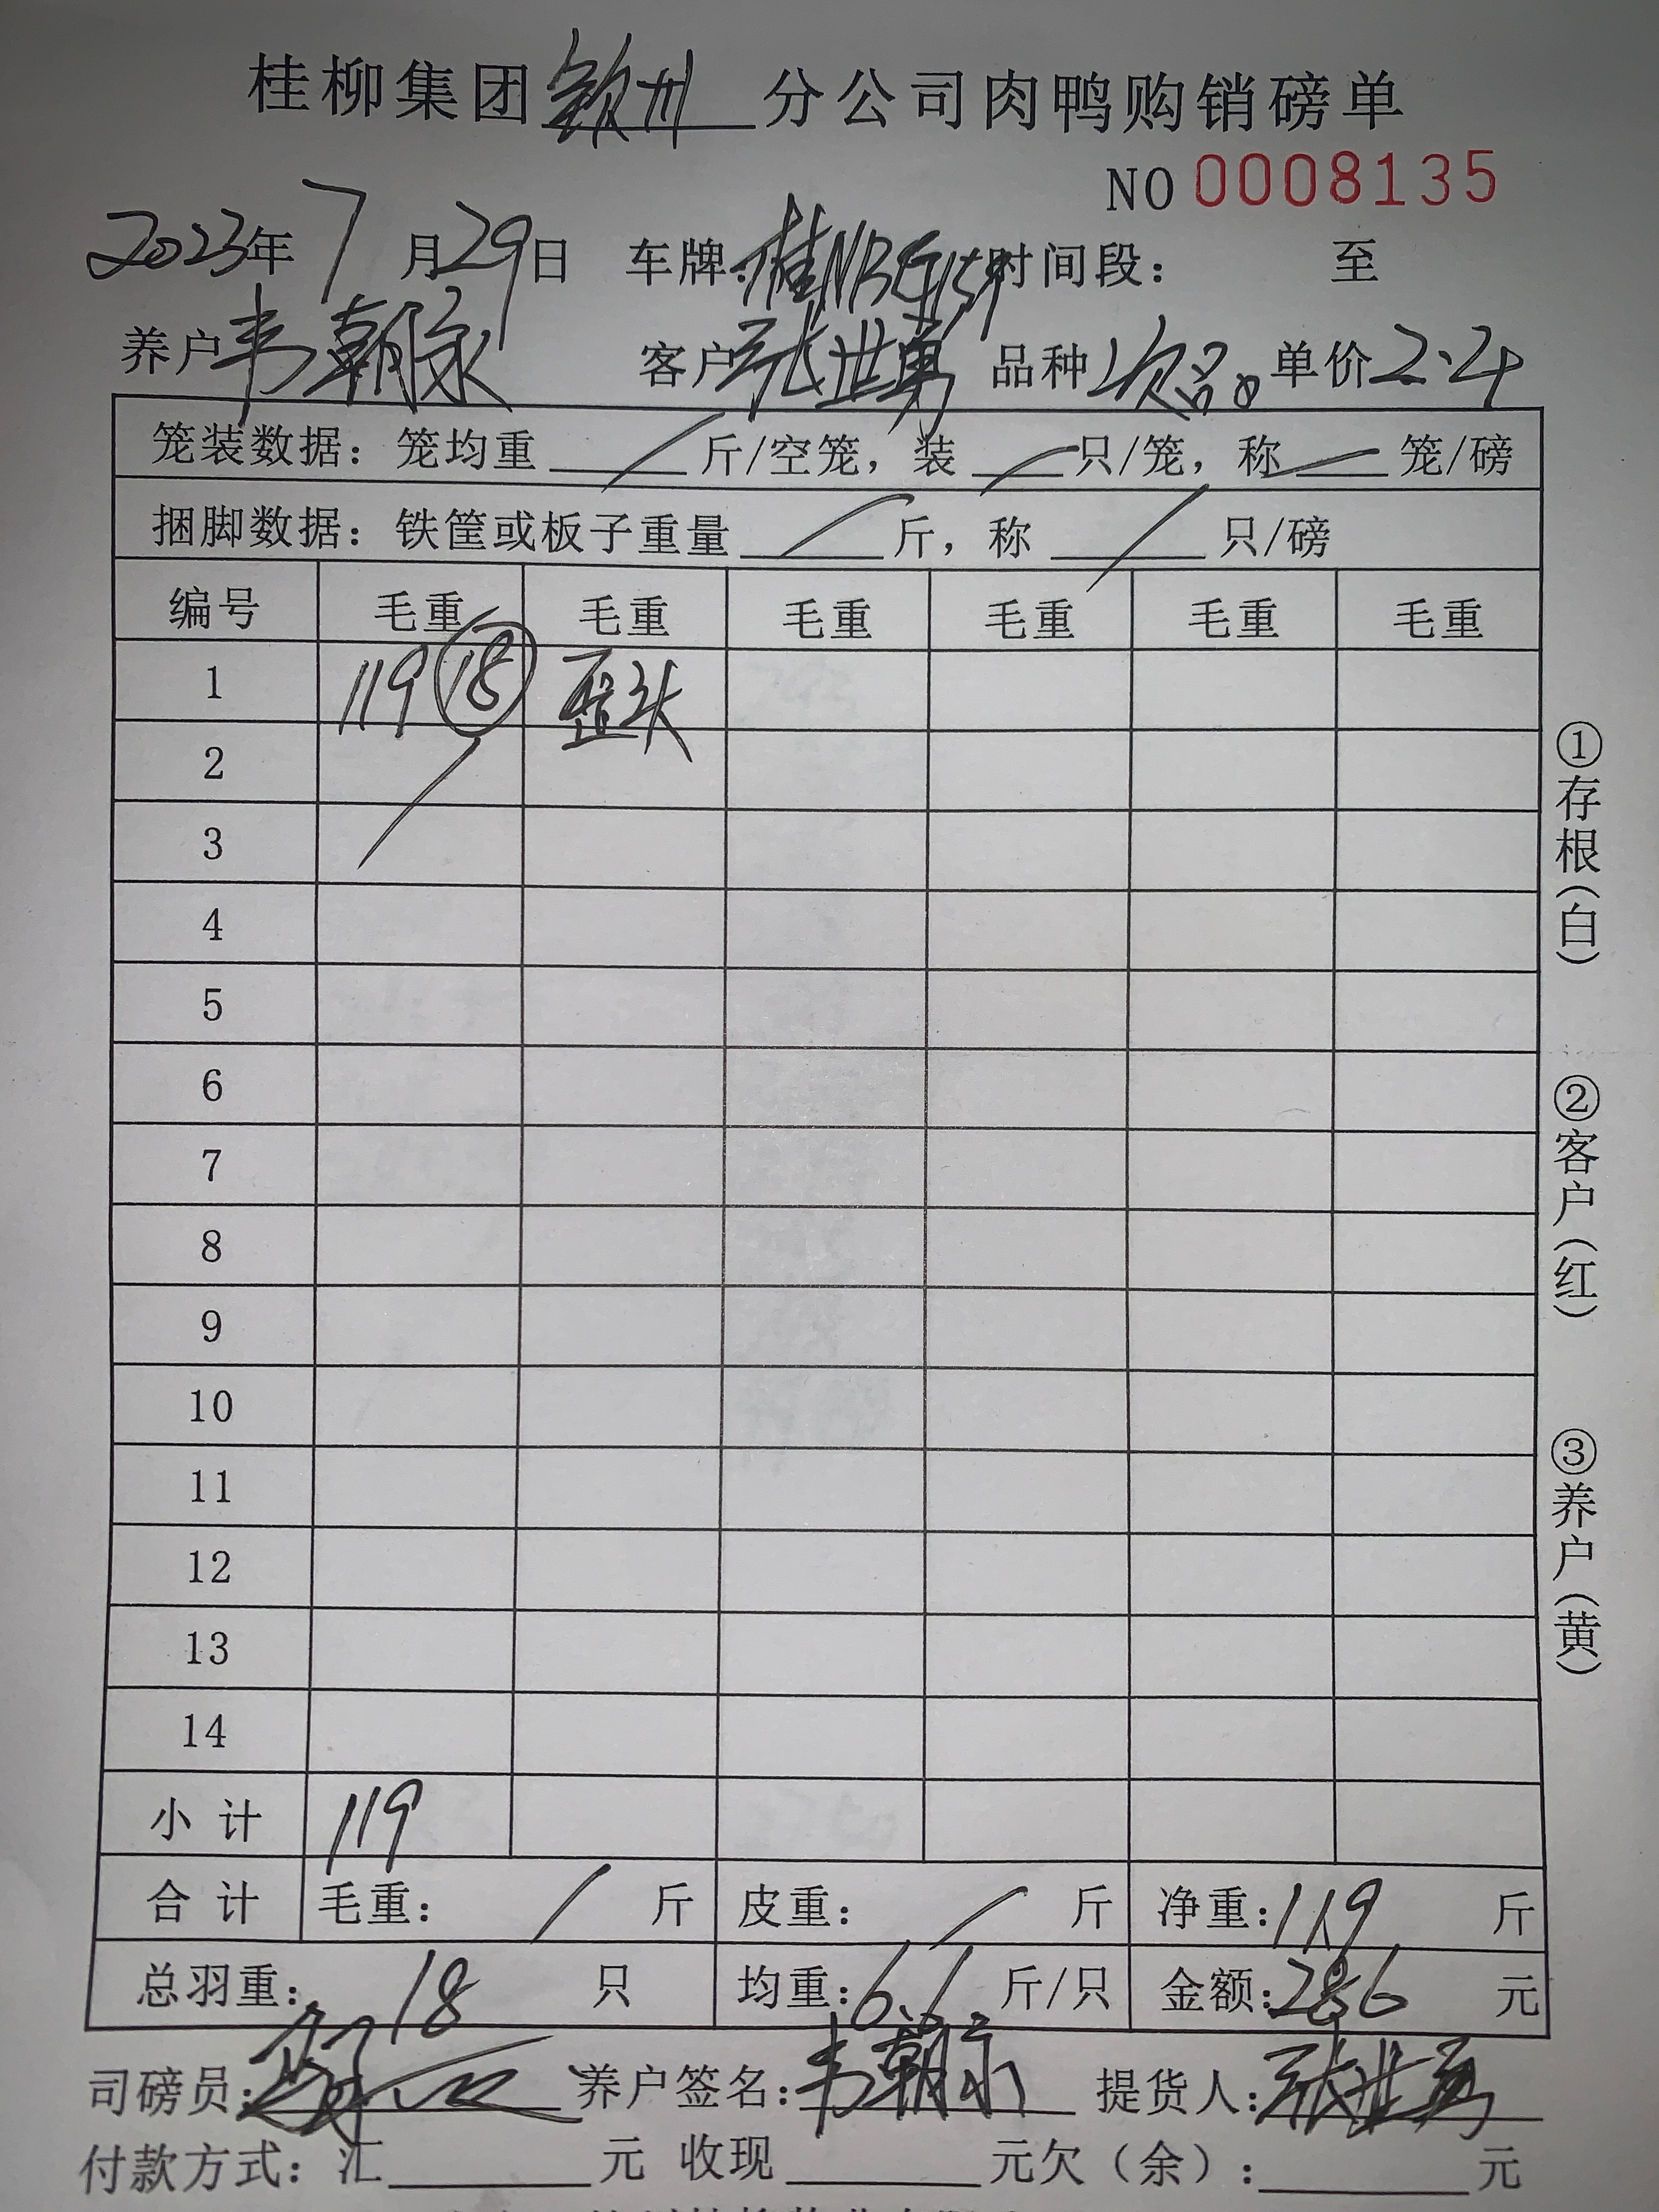 桂柳集团钦州分公司肉鸭购销磅单
NO 0008135
2023年7月29日 车牌:桂N 时间段: 至
养户韦朝 客户张世勇 品种次品。单价2.4
笼装数据: 笼均重 / 斤/空笼, 装 / 只/笼, 称 / 笼/磅
捆脚数据: 铁筐或板子重量 / 斤, 称 / 只/磅
编号 毛重 毛重 毛重 毛重 毛重 毛重
1 119 ⑱ 歪头
2 /
3
4
5
6
7
8
9
10
11
12
13
14
小计 119
合计 毛重: / 斤 皮重: / 斤 净重:119 斤
总羽重: 18 只 均重:6.6 斤/只 金额:286 元
司磅员: 养户签名:韦朝 提货人:张世勇
付款方式: 汇 元 收现 元欠(余): 元
①存根(白)
②客户(红)
③养户(黄)